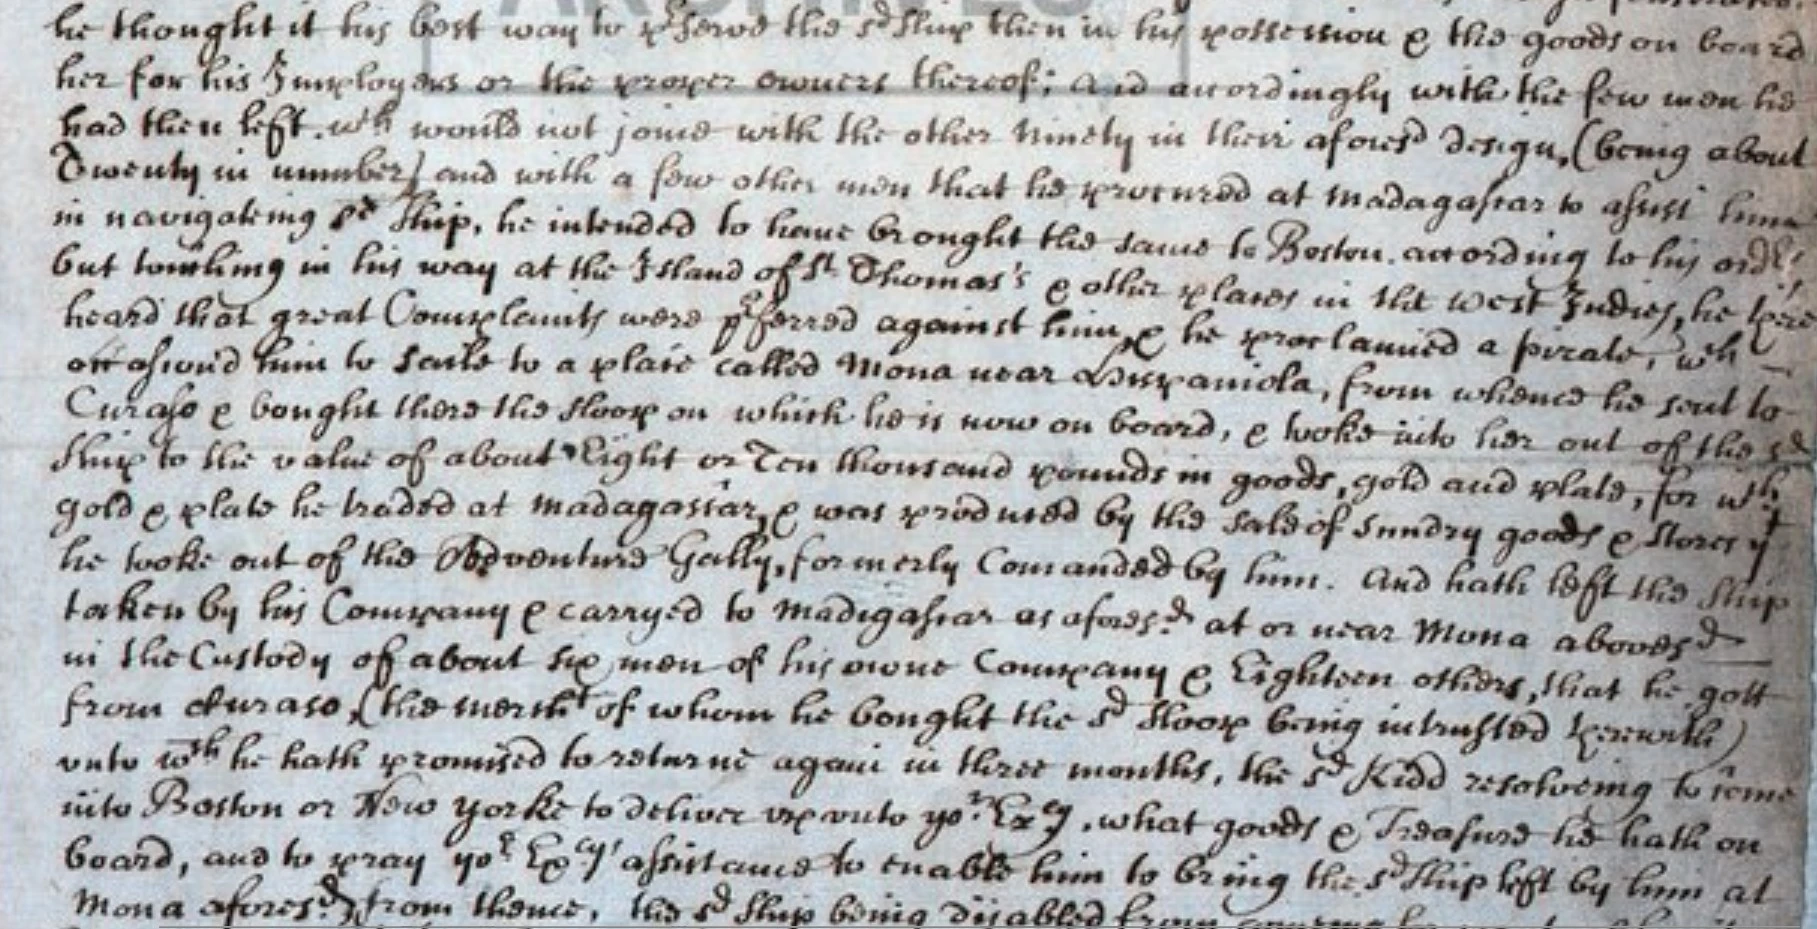 he thought it his best way to p'serve the sd Ship then in his possession & the goods on board
her for his Imployers or the proper owners thereof; And accordingly with the few men he
had then left wch would not joine with the other Ninety in their aforesd design, (being about
Twenty in number) and with a few other men that he procured at Madagascar to assist him
in navigateing sd Ship, he intended to have brought the same to Boston according to his ordrs
but touching in his way at the Island of St Thomas's & other places in the West Indies, he there
heard that great Complaints were p'ferred against him & he proclaimed a pirate, wch
occasiond him to saile to a place called Mona near Hispaniola, from whence he sent to
Curaso & bought there the sloop on which he is now on board, & tooke into her out of the sd
Ship to the value of about Eight or Ten thousand pounds in goods, gold and plate, for wch
gold & plate he traded at Madagascar, & was produced by the sale of sundry goods & stores yt
he tooke out of the Adventure Gally, formerly Comanded by him. And hath left the Ship
taken by his Company & carryed to Madigascar as aforesd at or near Mona abovesd
in the Custody of about six men of his owne Company & Eighteen others, that he gott
from Curaso, (the mercht of whom he bought the sd sloop being intrusted therewith)
unto wch he hath promised to returne again in three months, the sd Kidd resolveing to come
into Boston or New Yorke to deliver up unto yor Excy, what goods & Treasure he hath on
board, and to pray yor Excys assistance to enable him to bring the sd Ship left by him at
Mona aforesd, from thence, the sd Ship being disabled from